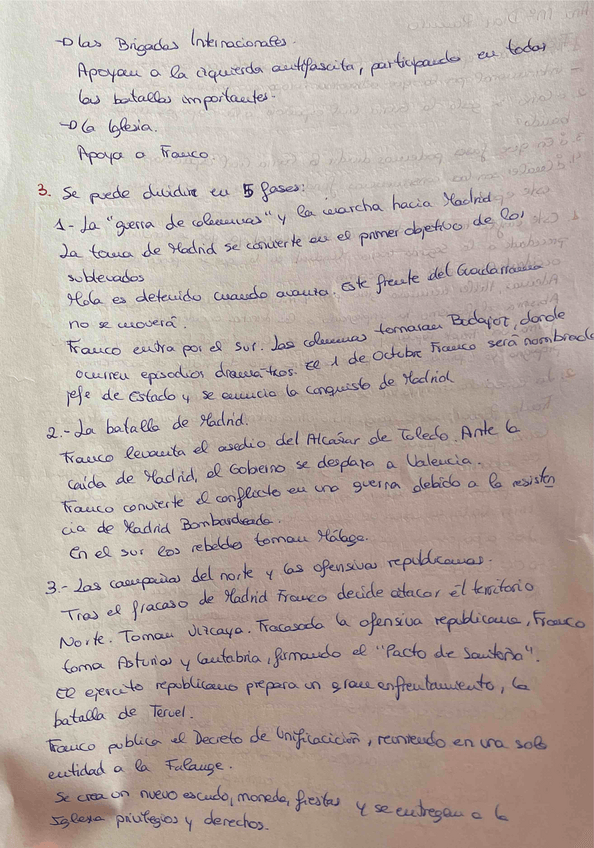 → las Brigadas Internacionales.
Apoyan a la izquierda antifascita, participando en todas
las batallas importantes.
→ La Iglesia.
Apoya a Franco.
3. Se puede dividir en 5 fases:
1- La "guerra de columnas" y la marcha hacia Madrid
La toma de Madrid se convierte en el primer objetivo de los
sublevados
Mola es detenido cuando avanza. Este frente del Guadarrama
no se moverá.
Franco entra por el sur. Las columnas tomaran Badajoz, donde
ocurren episodios dramáticos. El 1 de Octubre Franco será nombrado
jefe de Estado y se anuncia la conquista de Madrid
2.- La batalla de Madrid.
Franco levanta el asedio del Alcázar de Toledo. Ante la
caída de Madrid, el Gobierno se desplaza a Valencia.
Franco convierte el conflicto en una guerra debido a la resisten
cia de Madrid Bombardeada.
En el sur los rebeldes toman Málaga.
3.- Las campañas del norte y las ofensivas republicanas.
Tras el fracaso de Madrid Franco decide atacar el territorio
Norte. Toman Vizcaya. Fracasada la ofensiva republicana, Franco
toma Asturias y Cantabria, firmando el "Pacto de Santoña".
El ejercito republicano prepara un gran enfrentamiento, la
batalla de Teruel.
Franco publica el Decreto de Unificación, reuniendo en una sola
entidad a la Falange.
Se crea un nuevo escudo, moneda, fiestas y se entregan a la
Iglesia privilegios y derechos.